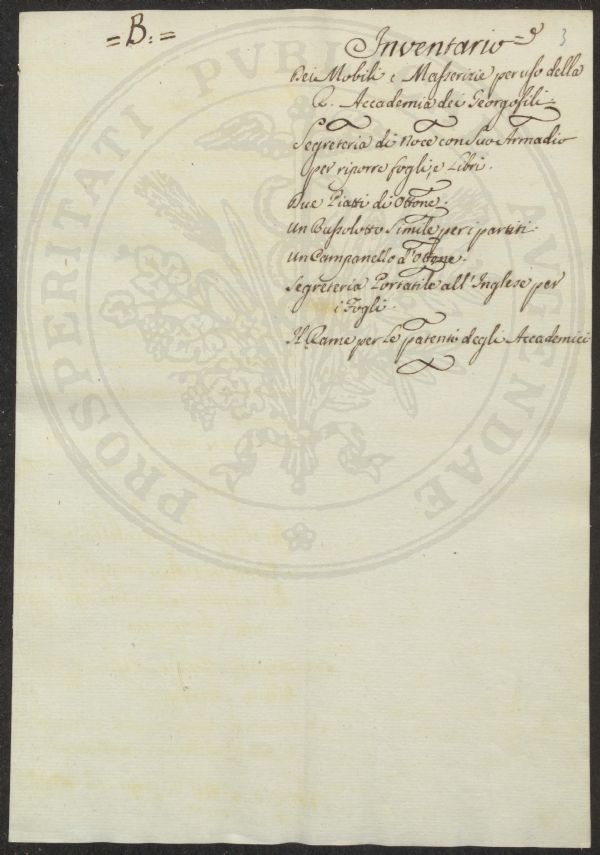 = B. =
3
Inventario
Dei Mobili e Masserizie per uso della
R. Accademia dei Georgofili.
Segreteria di Noce con suo Armadio
per riporre fogli, e Libri.
Due Piatti di Ottone.
Un Bussolotto Simile per i partiti.
Un Campanello d'Ottone.
Segreteria Portatile all'Inglese per
i Fogli.
Il Rame per Le patenti degli Accademici
PROSPERITATI PUBLICAE AUGENDAE